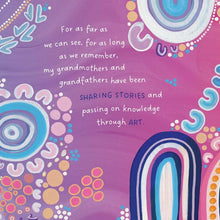 For as far as
we can see, for as long
as we remember,
my grandmothers and
grandfathers have been
SHARING STORIES and
passing on knowledge
through ART.